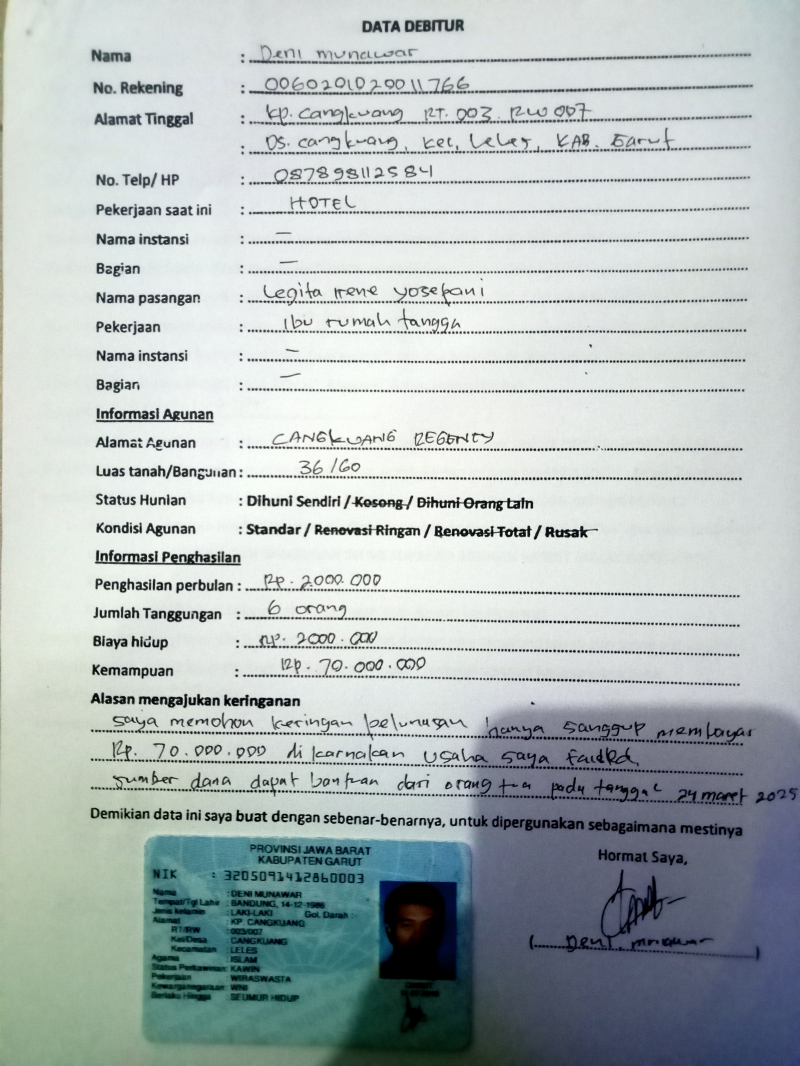 DATA DEBITUR
Nama : Deni munawar
No. Rekening : 0060201020011766
Alamat Tinggal : Kp. Cangkuang RT. 003. RW 007
: DS. Cangkuang, Kec, Leles, KAB. Garut
No. Telp/ HP : 087898112584
Pekerjaan saat ini : HOTEL
Nama instansi : –
Bagian : –
Nama pasangan : Legita Irene yosefani
Pekerjaan : Ibu rumah tangga
Nama instansi : –
Bagian : –
Informasi Agunan
Alamat Agunan : CANGKUANG REGENTY
Luas tanah/Bangunan : 36/60
Status Hunian : Dihuni Sendiri / Kosong / Dihuni Orang Lain
Kondisi Agunan : Standar / Renovasi Ringan / Renovasi Total / Rusak
Informasi Penghasilan
Penghasilan perbulan : Rp. 2000.000
Jumlah Tanggungan : 6 orang
Biaya hidup : Rp. 2000.000
Kemampuan : Rp. 70.000.000
Alasan mengajukan keringanan
saya memohon keringan pelunasan hanya sanggup membayar
Rp. 70.000.000 di karnakan usaha saya
sumber dana dapat bantuan dari orang tua pada tanggal 24 maret 2025
Demikian data ini saya buat dengan sebenar-benarnya, untuk dipergunakan sebagaimana mestinya
Hormat Saya,
PROVINSI JAWA BARAT
KABUPATEN GARUT
NIK : 3205091412860003
Nama : DENI MUNAWAR
Tempat/Tgl Lahir : BANDUNG, 14-12-1986
Jenis kelamin : LAKI-LAKI Gol. Darah :
Alamat : KP. CANGKUANG
RT/RW : 003/007
Kel/Desa : CANGKUANG
Kecamatan : LELES
Agama : ISLAM
Status Perkawinan: KAWIN
Pekerjaan : WIRASWASTA
Kewarganegaraan: WNI
Berlaku Hingga : SEUMUR HIDUP